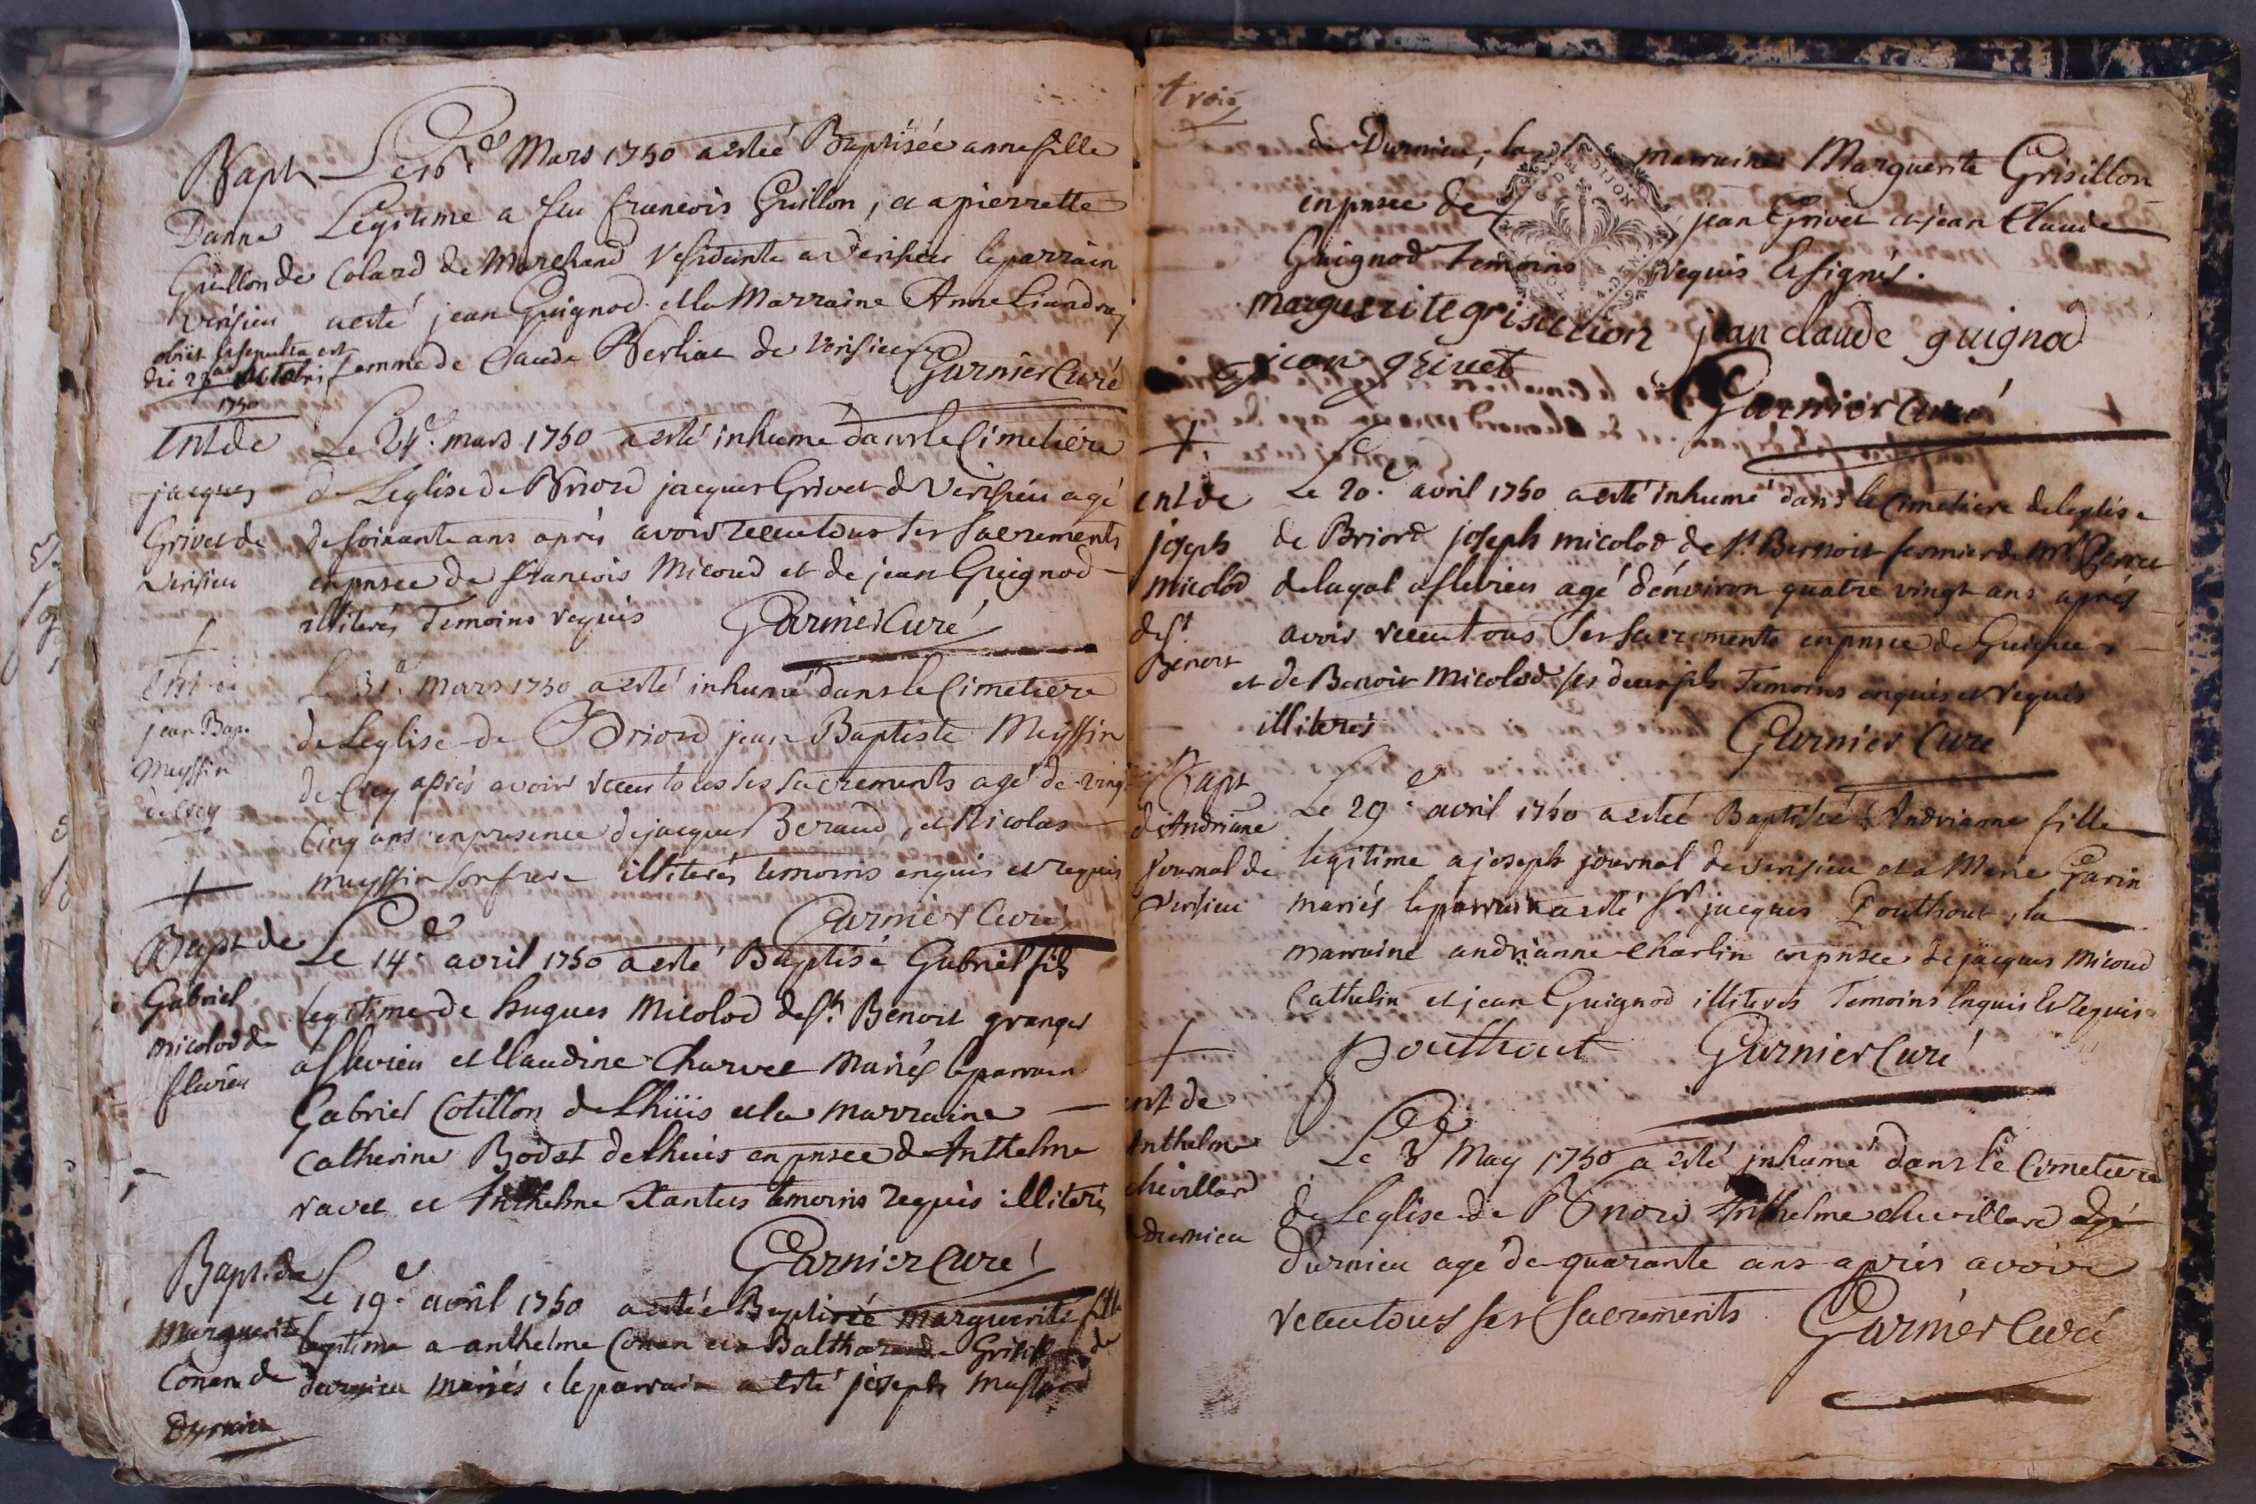 Bapt
Danne
Guillon de
Verisieu
obiit et sepulta est
die 27 octobris
1750
Le 16.e Mars 1750 a estée Baptisée anne fille
Legitime a feu francois Guillon, et a pierrette
Colard de Marchand residante a Verisieu le parrain
a esté jean Guignod et la Marraine Anne Liandra
femme de Claude Berliat de Verisieu
Garnier Curé
Ent de
jacques
Grivet de
Verisieu
Le 24.e mars 1750 a esté inhumé dans le Cimetiére
de Leglise de Briord jacques Grivet de Verisieu agé
de soixante ans aprés avoir receu tous ses sacrements
en pnsce de francois Micoud et de jean Guignod
illiterés Temoins requis Garnier Curé
Ent de
jean Bap.
Meyssin
de Crey
Le 31.e Mars 1750 a esté inhumé dans le Cimetiere
de Leglise de Briord jean Baptiste Meyssin
de Crey aprés avoir receu tous ses sacrements agé de vingt
Cinq ans en presence de jacques Beraud, et Nicolas
meyssin son frere illiterés temoins enquis et requis
Garnier Curé
Bapt de
Gabriel
micolod de
flevieu
Le 14.e avril 1750 a esté Baptisé Gabriel fils
legitime de hugues Micolod de St Benoit granger
a flevieu et Claudine Charvet Mariés le parrain
Gabriel Cotillon de Lhuis et la marraine
Catherine Bodet de Lhuis en pnsce de Anthelme
ravet et Anthelme Xantus temoins requis illiterés
Garnier Curé
Bapt de
Marguerite
Conan de
Durnieu
Le 19.e avril 1750 a estée Baptisée Marguerite fille
legitime a anthelme Conan et a Balthazarde de
durnieu mariés, le parrain a esté joseph
trois
de Durnieu, la marraine Marguerite Grisillon
en pnsce de jean Grivet et jean Claude
Guignod Temoins requis Et signés.
marguerite grisillion jean claude guignod
jean grivet
Garnier Curé
Ent de
joseph
micolod
de St
Benoit
Le 20.e avril 1750 a esté inhumé dans le Cimetiere de leglise
de Briord joseph micolod de St Bennoit fermier de Mr Perret
delagal a flevieu agé d'environ quatre vingt ans aprés
avoir receu tous ses sacrements en pnsce de
et de Benoit Micolod ses deux fils Temoins enquis et requis
illiterés
Garnier Curé
Bapt
d'Andriane
Journal de
Verisieu
Le 29.e avril 1750 a estée Baptisée Andrianne fille
legitime a joseph journal de verisieu et a Marie Garin
mariés le parrain a esté Sr jacques Pouthout, la
marraine andrianne Charlin en pnsce de jacques Micoud
Cathelin et jean Guignod illiterés Temoins Enquis Et requis
pouthout Garnier Curé
Ent de
Anthelme
chevillard
durnieu
Le 8 May 1750 a esté inhumé dans le Cimetiere
de Leglise de Briord Anthelme chevillard agé
durnieu agé de quarante ans aprés avoir
receu tous ses Sacrements Garnier Curé